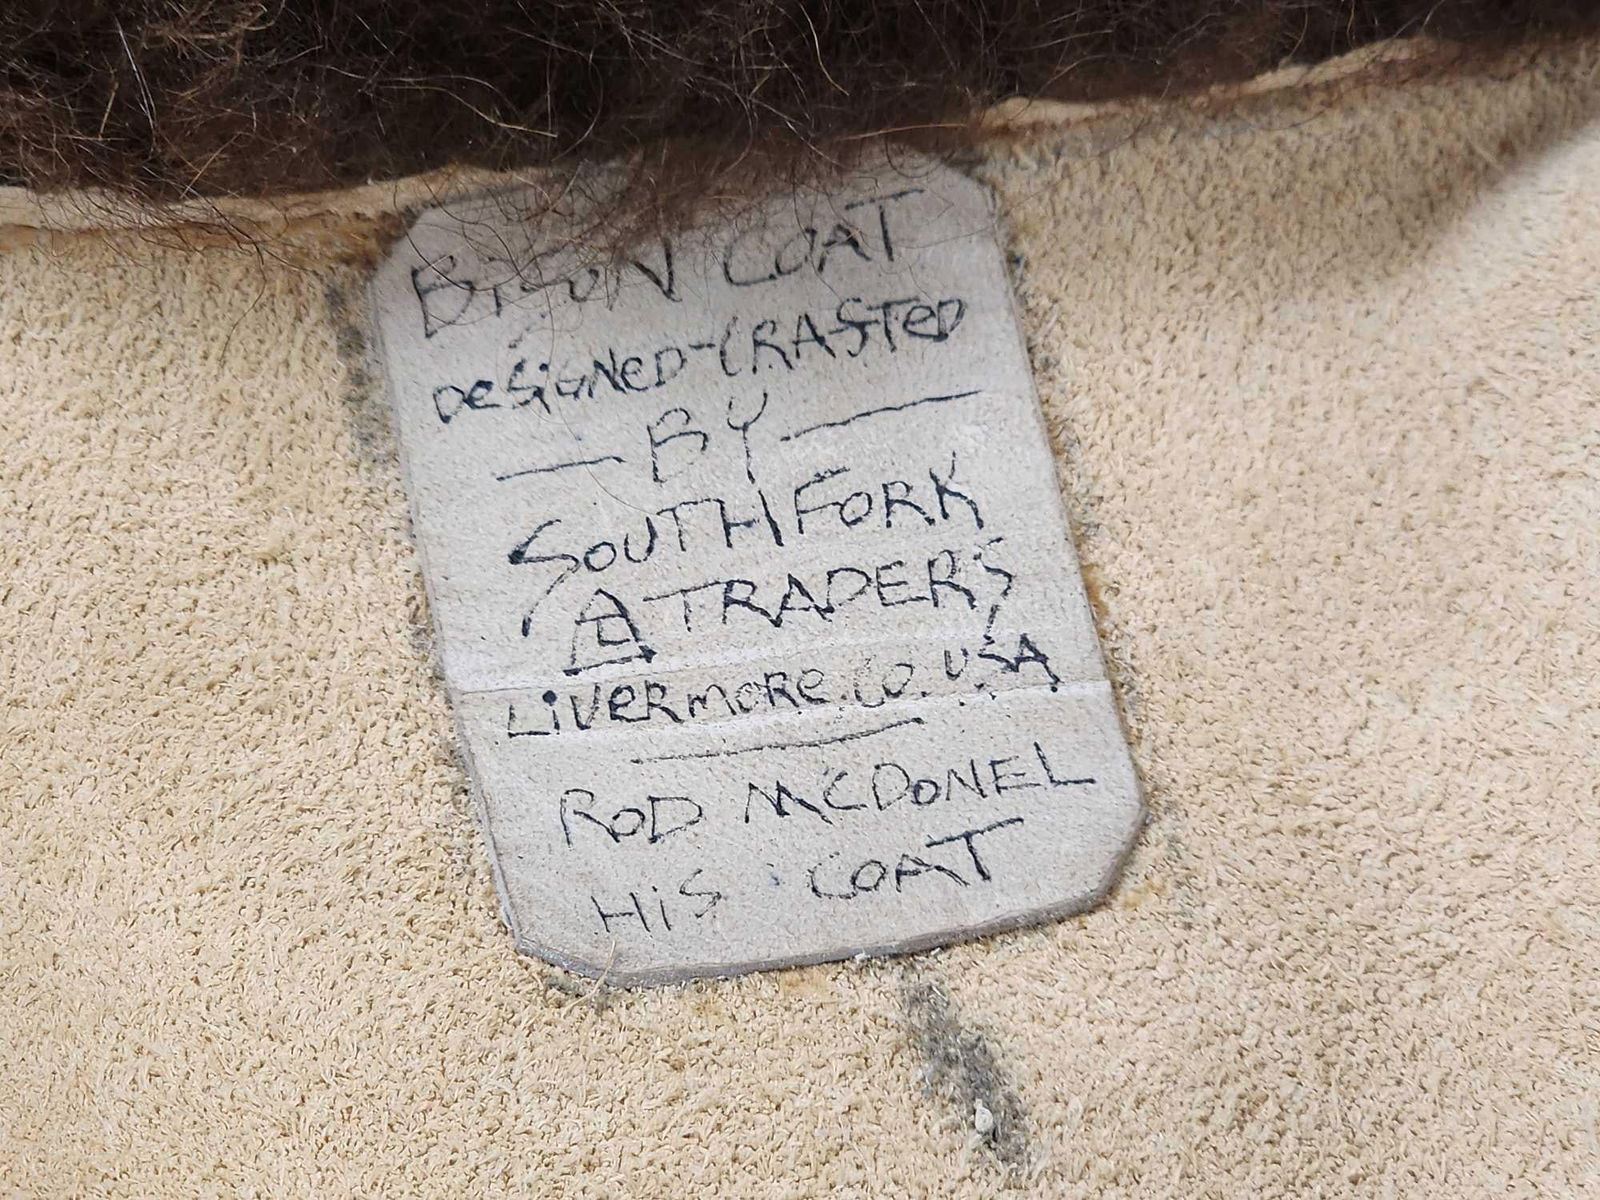 BISON COAT
DeSiGNeD-CRAFTeD
— BY —
SOUTH FORK
TRADERS
LiVeRmoRe.CO.USA
ROD McDONEL
HiS COAT